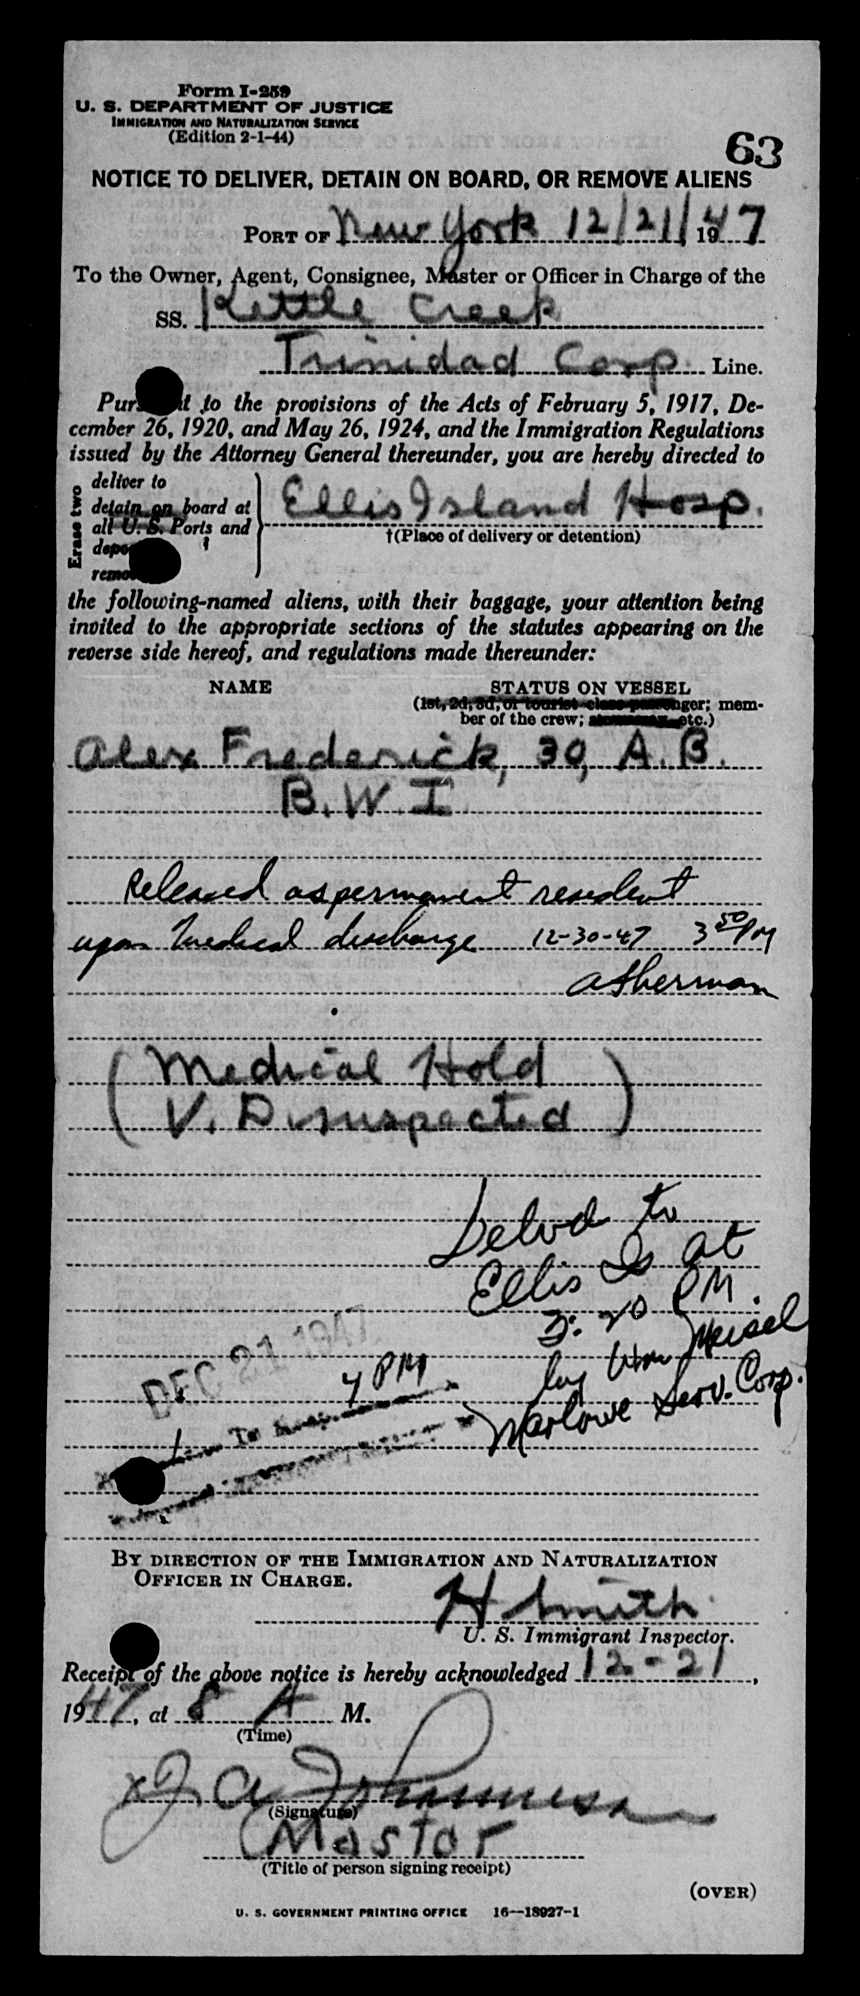 Form I-259
U. S. DEPARTMENT OF JUSTICE
IMMIGRATION AND NATURALIZATION SERVICE
(Edition 2-1-44)
63
NOTICE TO DELIVER, DETAIN ON BOARD, OR REMOVE ALIENS
PORT OF New York 12/21/ 1947
To the Owner, Agent, Consignee, Master or Officer in Charge of the
SS. Kettle Creek
Trinidad Corp. Line.
Pursuant to the provisions of the Acts of February 5, 1917, De-
cember 26, 1920, and May 26, 1924, and the Immigration Regulations
issued by the Attorney General thereunder, you are hereby directed to
Erase two
deliver to
detain on board at
all U. S. Ports and
Ellis Island Hosp.
†(Place of delivery or detention)
the following-named aliens, with their baggage, your attention being
invited to the appropriate sections of the statutes appearing on the
reverse side hereof, and regulations made thereunder:
NAME STATUS ON VESSEL
(1st, 2d, 3d, or tourist class passenger; mem-
ber of the crew; etc.)
Alex Frederick, 30, A.B.
B.W.I
Released as permanent resident
upon medical discharge 12-30-47 3 50 PM
A Sherman
(Medical Hold
V. D. suspected)
Delvd to
Ellis Is at
3:20 PM.
by Wm Meisel
Marlowe Serv. Corp.
DEC 21 1947
4 PM
BY DIRECTION OF THE IMMIGRATION AND NATURALIZATION
OFFICER IN CHARGE.
H Smith
U. S. Immigrant Inspector.
Receipt of the above notice is hereby acknowledged 12-21,
1947, at 8 A M.
(Time)
x J. A. Johannessen
(Signature)
Master
(Title of person signing receipt)
(OVER)
U. S. GOVERNMENT PRINTING OFFICE 16—18927-1